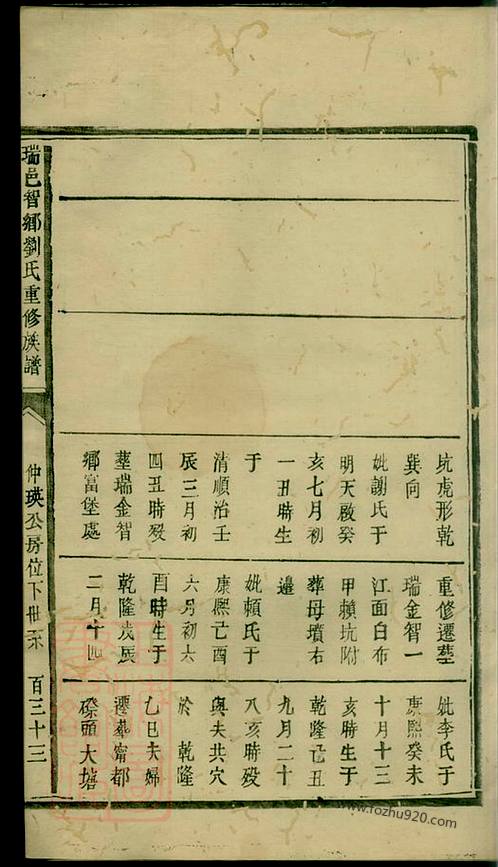 坑虎形乾
巽向
妣謝氏于
明天啟癸
亥七月初
一丑時生
于
清順治壬
辰三月初
四丑時歿
塟瑞金智
鄉富堡處
重修遷塟
瑞金智一
江面白布
甲賴坑附
葬母墳右
邊
妣賴氏于
康熙己酉
六月初六
酉時生于
乾隆戊辰
二月十四
妣李氏于
康熙癸未
十月十三
亥時生于
乾隆己丑
九月二十
八亥時歿
與夫共穴
於乾隆
乙巳夫婦
遷塟甯都
磜頭大塘
瑞邑智鄉劉氏重修族譜
仲瑛公房位下世系
百三十三
www.fozhu920.com